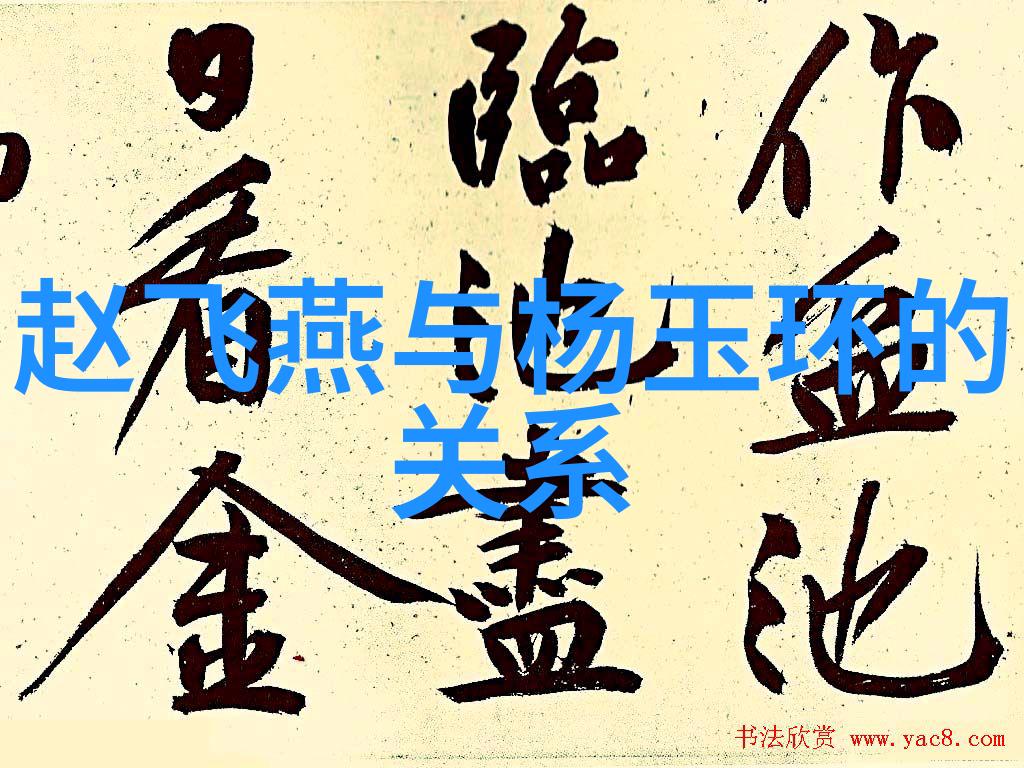 作盆池
臨池盡
日看金
赵飞燕与杨玉环的
关系
书法欣赏 www.yac8.com